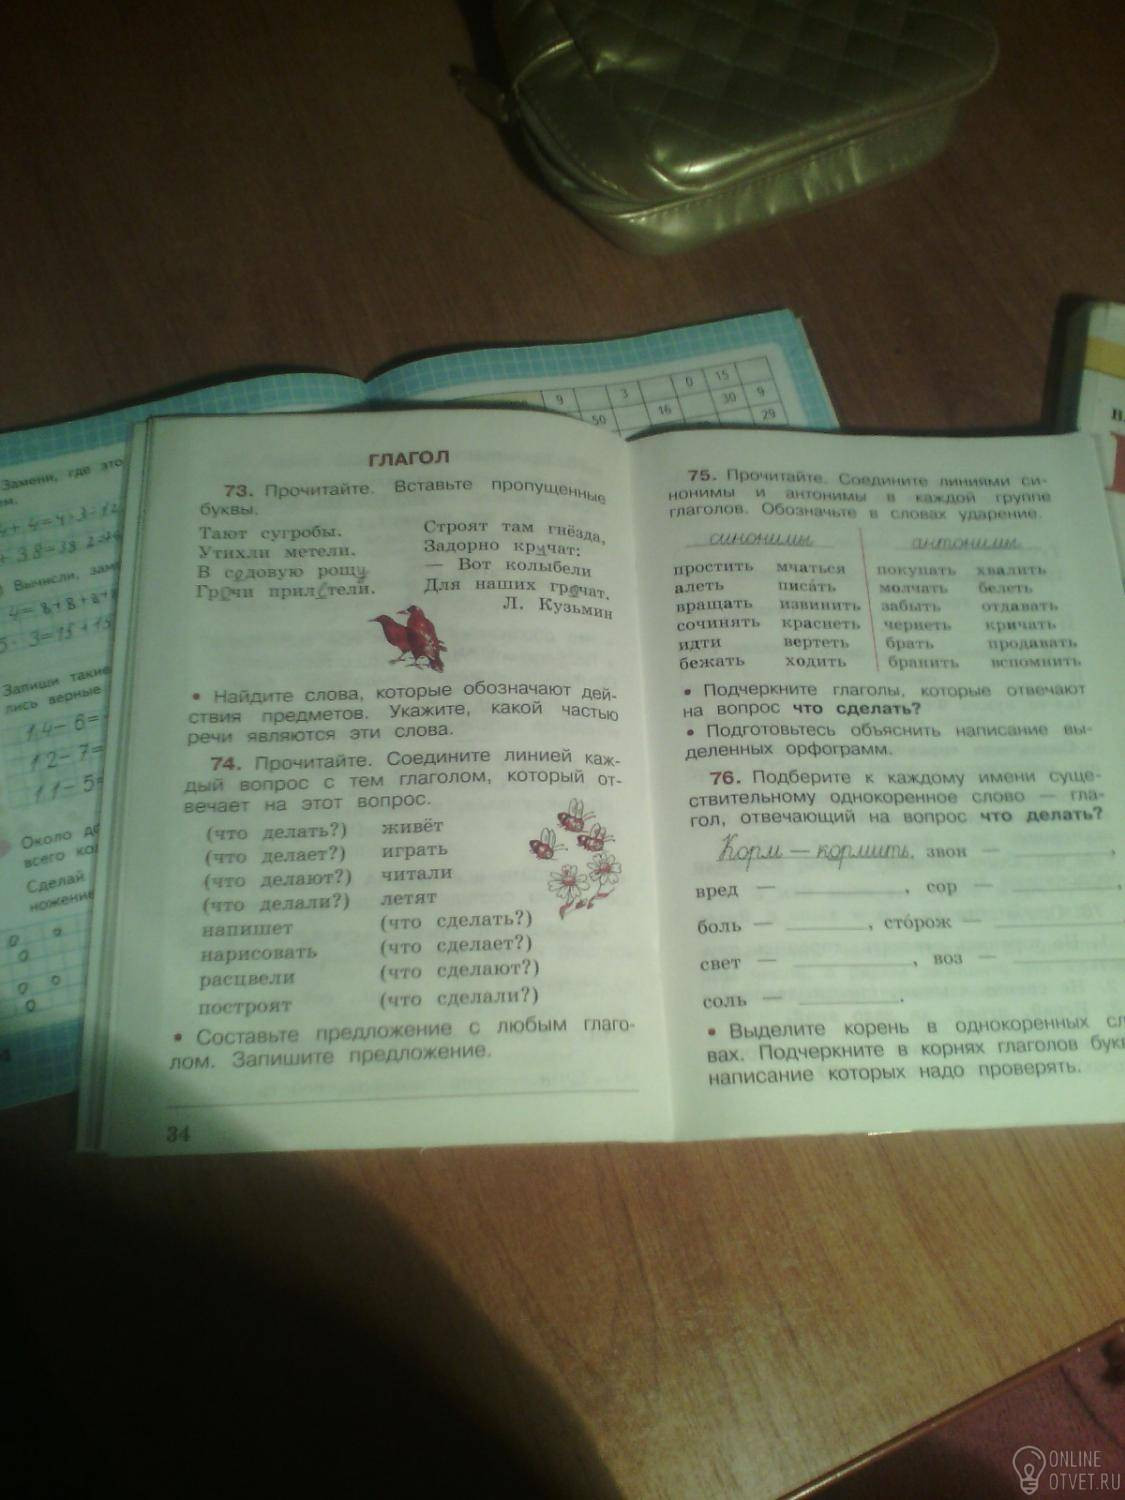 ГЛАГОЛ
73. Прочитайте. Вставьте пропущенные
буквы.
Тают сугробы.
Утихли метели.
В садовую рощу
Грачи прилетели.
Строят там гнёзда,
Задорно кричат:
— Вот колыбели
Для наших грачат.
Л. Кузьмин
• Найдите слова, которые обозначают дей-
ствия предметов. Укажите, какой частью
речи являются эти слова.
74. Прочитайте. Соедините линией каж-
дый вопрос с тем глаголом, который от-
вечает на этот вопрос.
(что делать?) живёт
(что делает?) играть
(что делают?) читали
(что делали?) летят
напишет (что сделать?)
нарисовать (что сделает?)
расцвели (что сделают?)
построят (что сделали?)
• Составьте предложение с любым глаго-
лом. Запишите предложение.
34
75. Прочитайте. Соедините линиями си-
нонимы и антонимы в каждой группе
глаголов. Обозначьте в словах ударение.
синонимы антонимы
простить мчаться покупать хвалить
алеть писáть молчать белеть
вращать извинить забыть отдавать
сочинять краснеть чернеть кричать
идти вертеть брать продавать
бежать ходить бранить вспомнить
• Подчеркните глаголы, которые отвечают
на вопрос что сделать?
• Подготовьтесь объяснить написание вы-
деленных орфограмм.
76. Подберите к каждому имени суще-
ствительному однокоренное слово — гла-
гол, отвечающий на вопрос что делать?
Корм — кормить, звон — ,
вред — , сор — ,
боль — , стóрож —
свет — , воз —
соль — .
• Выделите корень в однокоренных сл
вах. Подчеркните в корнях глаголов бук
написание которых надо проверять.
9 3 0 15
50 16 30 9
29
Замени, где это
Вычисли, заме
Запиши такие
лись верные
14-6=
12-7=
11-5=
Около до
всего кол
Сделай
ножение
ONLINE
OTVET.RU